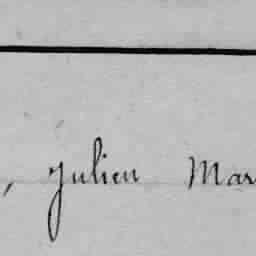 , Julien Mar